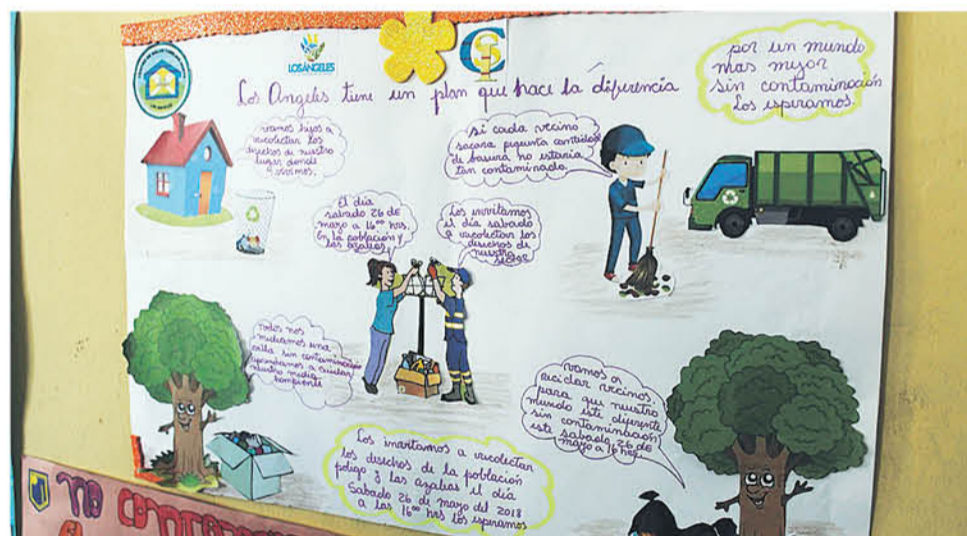 LOS ÁNGELES
Los Angeles tiene un plan que hace la diferencia
por un mundo
mas mejor
sin contaminación
Los esperamos.
vamos hijos a
recolectar los
desechos de nuestro
lugar donde
vivimos.
si cada vecino
sacara pequeña cantidad
de basura no estaria
tan contaminado.
El día
sabado 26 de
mayo a 16⁰⁰ hrs.
En la población y
las azalias.
Los invitamos
el día sabado
a recolectar los
desechos de
nuestro
sector
Todos nos
una
sin contaminación
a cuidar
nuestro medio
vamos a
reciclar vecinos
para que nuestro
mundo este diferente
sin contaminación
este sabado 26 de
mayo a 16 hrs.
Los invitamos a recolectar
los desechos de la población
poligo y las azalias el día
Sabado 26 de mayo del 2018
a las 16⁰⁰ hrs los esperamos
no